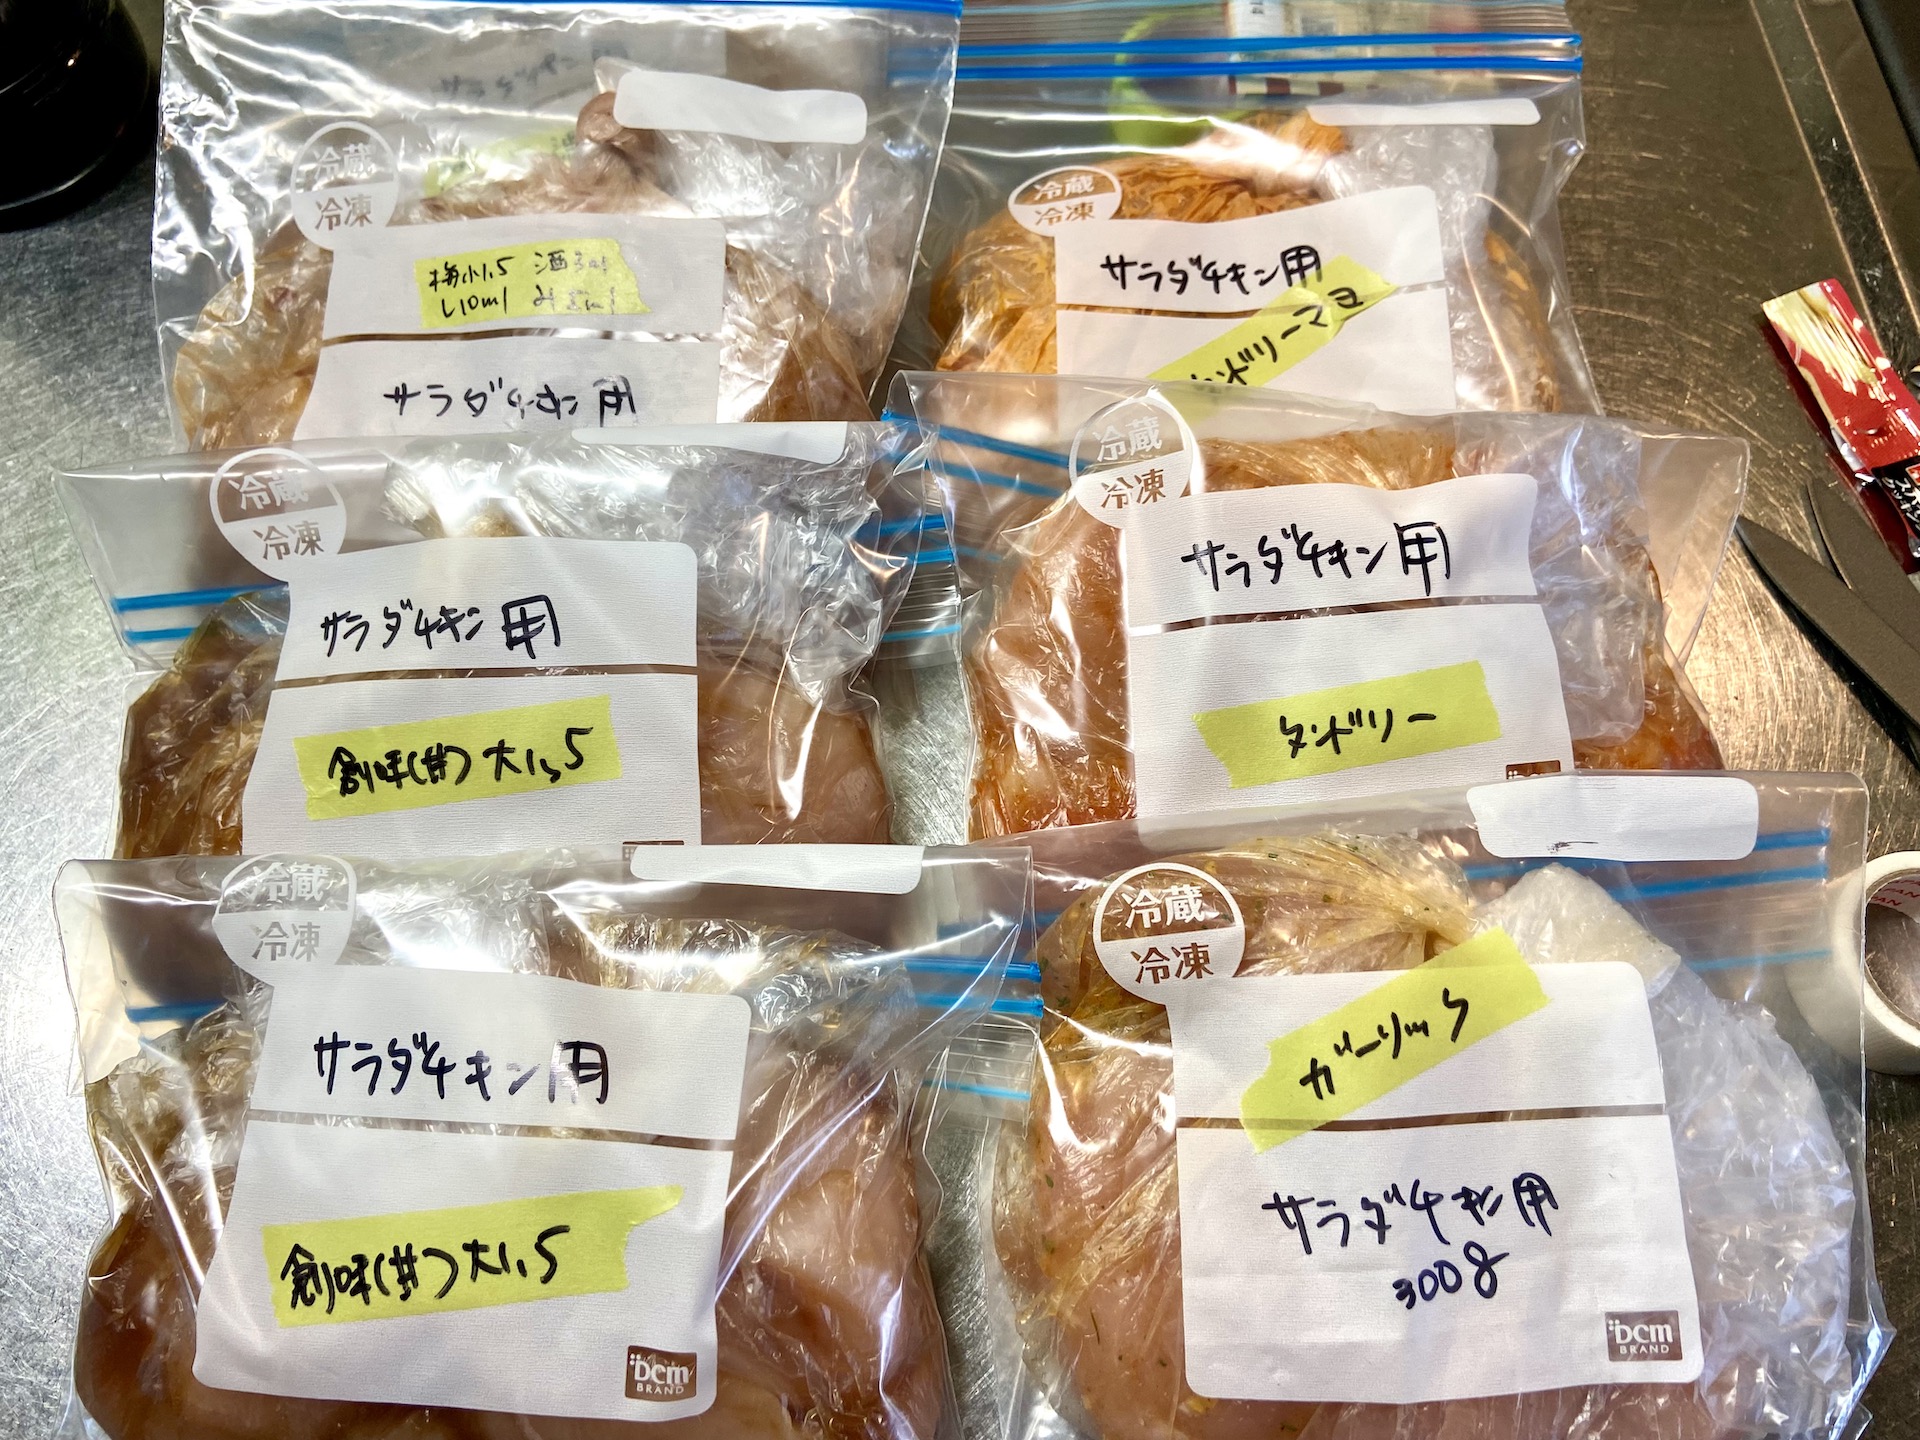 サラダチキン用
冷蔵
冷凍
梅小1.5 酒
し10ml み
サラダチキン用
冷蔵
冷凍
サラダチキン用
ンドリーマヨ
冷蔵
冷凍
サラダチキン用
創味(甘)大1.5
冷蔵
冷凍
サラダチキン用
タンドリー
冷蔵
冷凍
サラダチキン用
創味(甘)大1.5
DCM
BRAND
冷蔵
冷凍
ガーリック
サラダチキン用
300g
DCM
BRAND